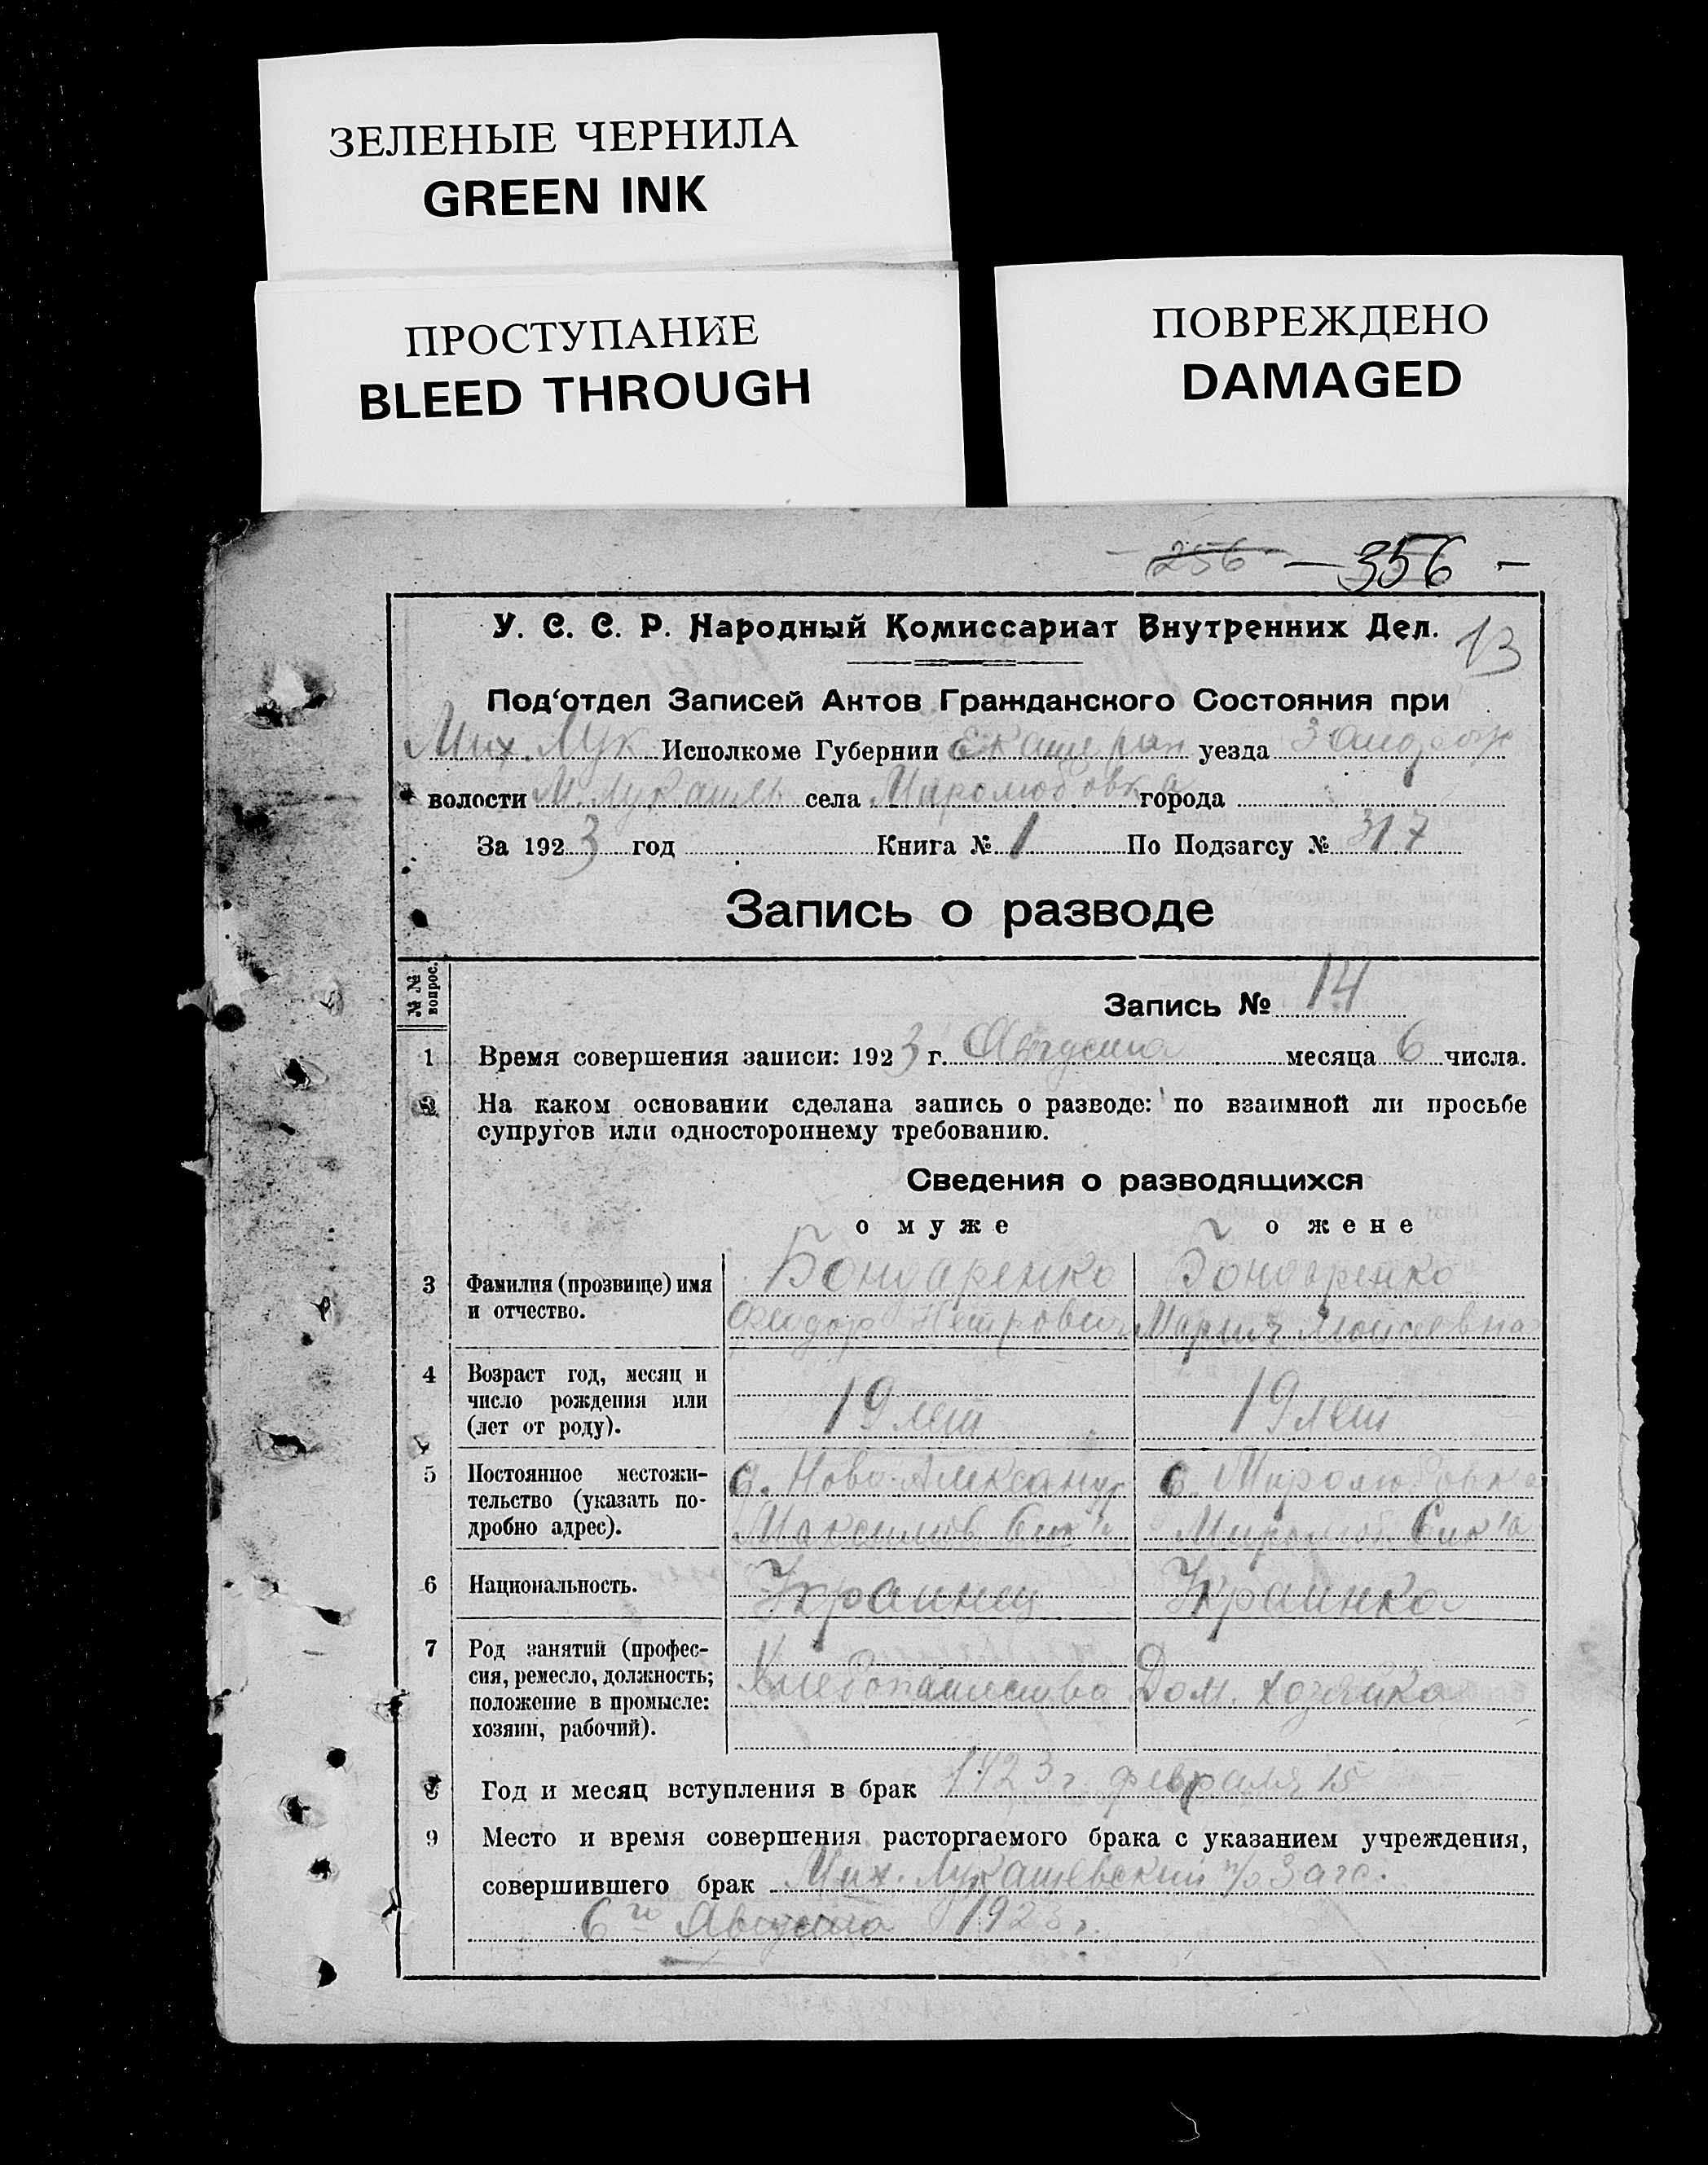 ЗЕЛЕНЫЕ ЧЕРНИЛА
GREEN INK
ПРОСТУПАНИЕ
BLEED THROUGH
ПОВРЕЖДЕНО
DAMAGED
256 — 356 —
У. С. С. Р. Народный Комиссариат Внутренних Дел.
13
Под'отдел Записей Актов Гражданского Состояния при
Мих. Лук Исполкоме Губернии Екатерин уезда
волости М. Лукашев села Миролюбовка города
За 1923 год Книга № 1 По Подзагсу № 317
Запись о разводе
№ № вопрос.
Запись № 14
1 Время совершения записи: 1923 г. Августа месяца 6 числа.
2 На каком основании сделана запись о разводе: по взаимной ли просьбе
супругов или одностороннему требованию.
Сведения о разводящихся
о муже о жене
3 Фамилия (прозвище) имя Бондаренко Бондаренко
и отчество. Феодор Петрович Мария Моисеевна
4 Возраст год, месяц и
число рождения или 19 лет 19 лет
(лет от роду).
5 Постоянное местожи- с. Ново-Александр с. Миролюбовка
тельство (указать по-
дробно адрес).
6 Национальность. Украинец Украинка
7 Род занятий (профес-
сия, ремесло, должность; Хлебопашество Дом. хозяйка
положение в промысле:
хозяин, рабочий).
8 Год и месяц вступления в брак 1923 г. февраля 15
9 Место и время совершения расторгаемого брака с указанием учреждения,
совершившего брак Мих. Лукашевский п/о Загс.
6го Августа 1923 г.